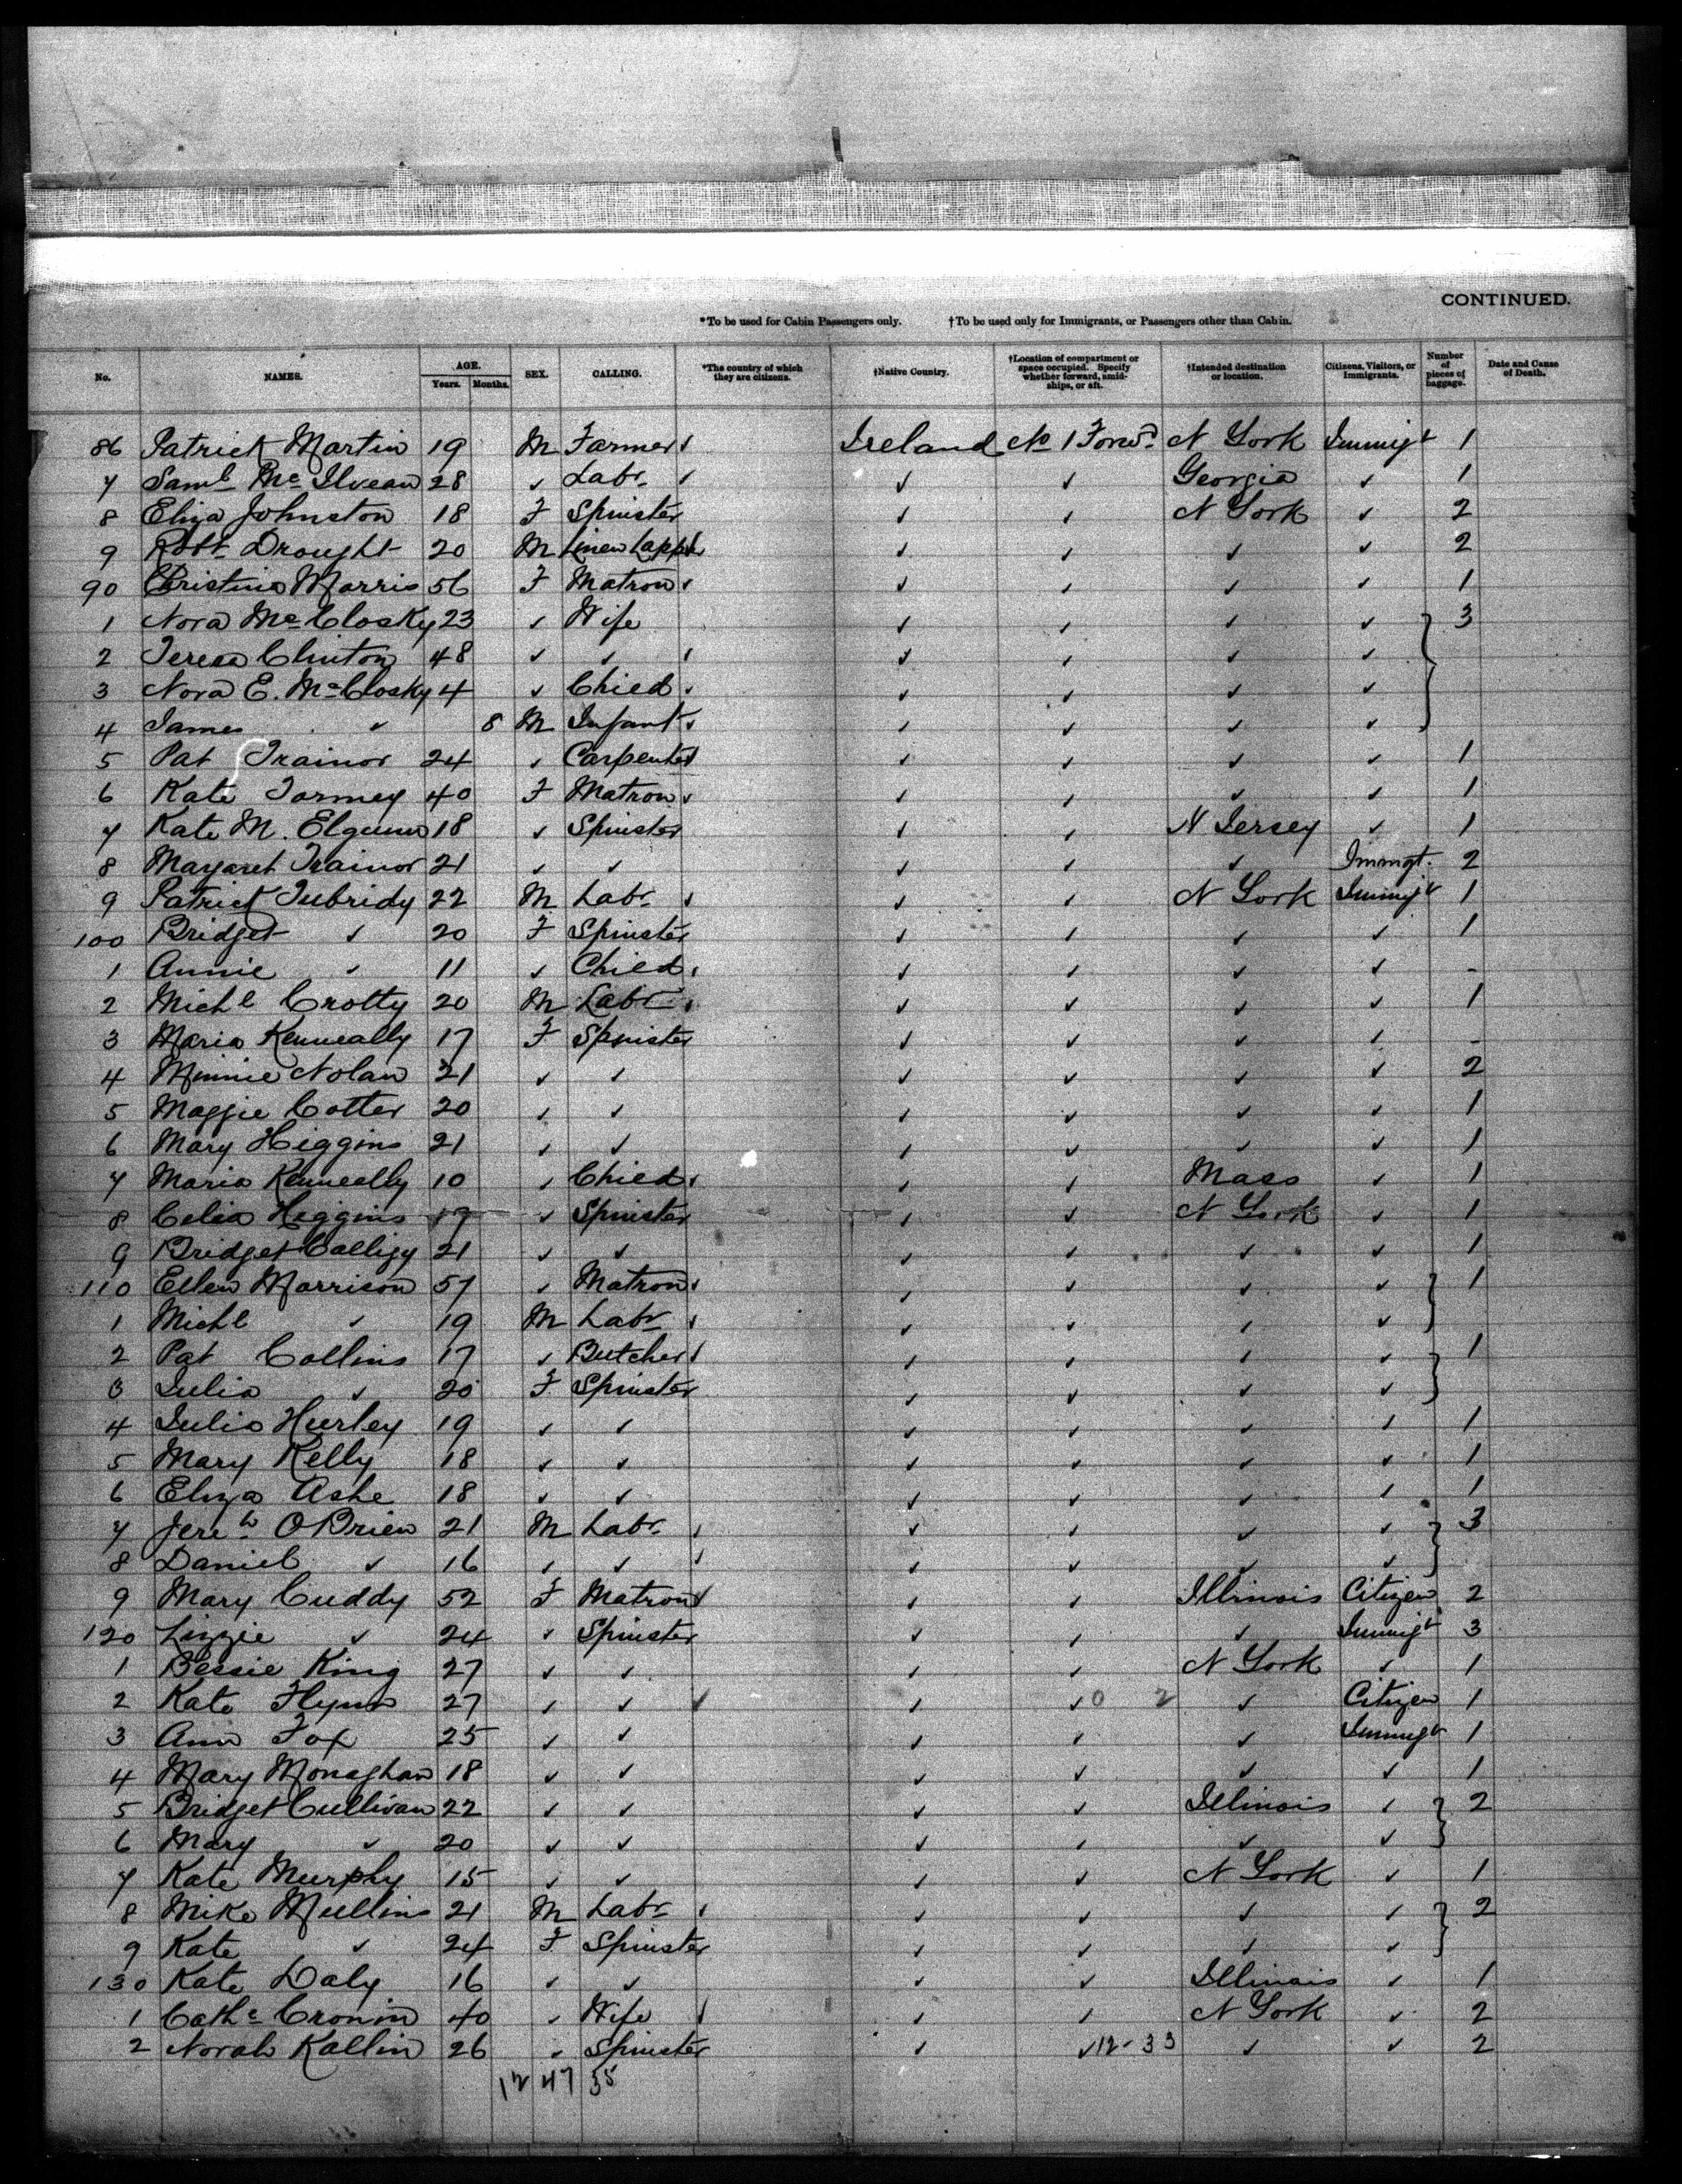 CONTINUED.
*To be used for Cabin Passengers only. †To be used only for Immigrants, or Passengers other than Cabin.
No. NAMES. AGE. Years. Months. SEX. CALLING. *The country of which they are citizens. †Native Country. †Location of compartment or space occupied. Specify whether forward, amidships, or aft. †Intended destination or location. Citizens, Visitors, or Immigrants. Number of pieces of baggage. Date and Cause of Death.
86 Patrick Martin 19 M Farmer Ireland No 1 Forwd. N York Immigt 1
7 Saml Mc Ilvean 28 ✓ Labr ✓ ✓ Georgia ✓ 1
8 Eliza Johnston 18 F Spinster ✓ ✓ N York ✓ 2
9 Robt Drought 20 M Linen Lapper ✓ ✓ ✓ ✓ 2
90 Christina Morris 56 F Matron ✓ ✓ ✓ ✓ 1
1 Nora McClosky 23 ✓ Wife ✓ ✓ ✓ ✓ } 3
2 Teresa Clinton 48 ✓ ✓ ✓ ✓ ✓ ✓
3 Nora E. McClosky 4 ✓ Chied ✓ ✓ ✓ ✓
4 James ✓ 8 M Infant ✓ ✓ ✓ ✓
5 Pat Trainor 24 ✓ Carpenter ✓ ✓ ✓ ✓ 1
6 Kate Tormey 40 F Matron ✓ ✓ ✓ ✓ 1
7 Kate M. 18 ✓ Spinster ✓ ✓ N Jersey ✓ 1
8 Margaret Trainor 21 ✓ ✓ ✓ ✓ ✓ Immgt. 2
9 Patrick Tubridy 22 M Labr ✓ ✓ N York Immigt 1
100 Bridget ✓ 20 F Spinster ✓ ✓ ✓ ✓ 1
1 Annie ✓ 11 ✓ Chied ✓ ✓ ✓ ✓ -
2 Michl Crotty 20 M Labr ✓ ✓ ✓ ✓ 1
3 Maria Kenneally 17 F Spinster ✓ ✓ ✓ ✓ -
4 Minnie Nolan 21 ✓ ✓ ✓ ✓ ✓ ✓ 2
5 Maggie Cotter 20 ✓ ✓ ✓ ✓ ✓ ✓ 1
6 Mary Higgins 21 ✓ ✓ ✓ ✓ ✓ ✓ 1
7 Maria Kenneally 10 ✓ Chied ✓ ✓ Mass ✓ 1
8 Celia Higgins 19 ✓ Spinster ✓ ✓ N York ✓ 1
9 Bridget Calligy 21 ✓ ✓ ✓ ✓ ✓ ✓ 1
110 Ellen Morrison 57 ✓ Matron ✓ ✓ ✓ ✓ } 1
1 Michl ✓ 19 M Labr ✓ ✓ ✓ ✓
2 Pat Collins 17 ✓ Butcher ✓ ✓ ✓ ✓ } 1
3 Julia ✓ 20 F Spinster ✓ ✓ ✓ ✓
4 Julia Hurley 19 ✓ ✓ ✓ ✓ ✓ ✓ 1
5 Mary Kelly 18 ✓ ✓ ✓ ✓ ✓ ✓ 1
6 Eliza Ashe 18 ✓ ✓ ✓ ✓ ✓ ✓ 1
7 Jereh OBrien 21 M Labr ✓ ✓ ✓ ✓ } 3
8 Daniel ✓ 16 ✓ ✓ ✓ ✓ ✓ ✓
9 Mary Cuddy 52 F Matron ✓ ✓ Illinois Citizen 2
120 Lizzie ✓ 24 ✓ Spinster ✓ ✓ ✓ Immigt 3
1 Bessie King 27 ✓ ✓ ✓ ✓ N York ✓ 1
2 Kate Flynn 27 ✓ ✓ ✓ ✓ 0 2 ✓ Citizen 1
3 Ann Fox 25 ✓ ✓ ✓ ✓ ✓ Immigt 1
4 Mary Monaghan 18 ✓ ✓ ✓ ✓ ✓ ✓ 1
5 Bridget Cullivan 22 ✓ ✓ ✓ ✓ Illinois ✓ } 2
6 Mary ✓ 20 ✓ ✓ ✓ ✓ ✓ ✓
7 Kate Murphy 15 ✓ ✓ ✓ ✓ N York ✓ 1
8 Mike Mullins 21 M Labr ✓ ✓ ✓ ✓ } 2
9 Kate ✓ 24 F Spinster ✓ ✓ ✓ ✓
130 Kate Daly 16 ✓ ✓ ✓ ✓ Illinois ✓ 1
1 Cathe Cronin 40 ✓ Wife ✓ ✓ N York ✓ 2
2 Norah Kallin 26 ✓ Spinster ✓ ✓ 12-33 ✓ ✓ 2
12 47 35